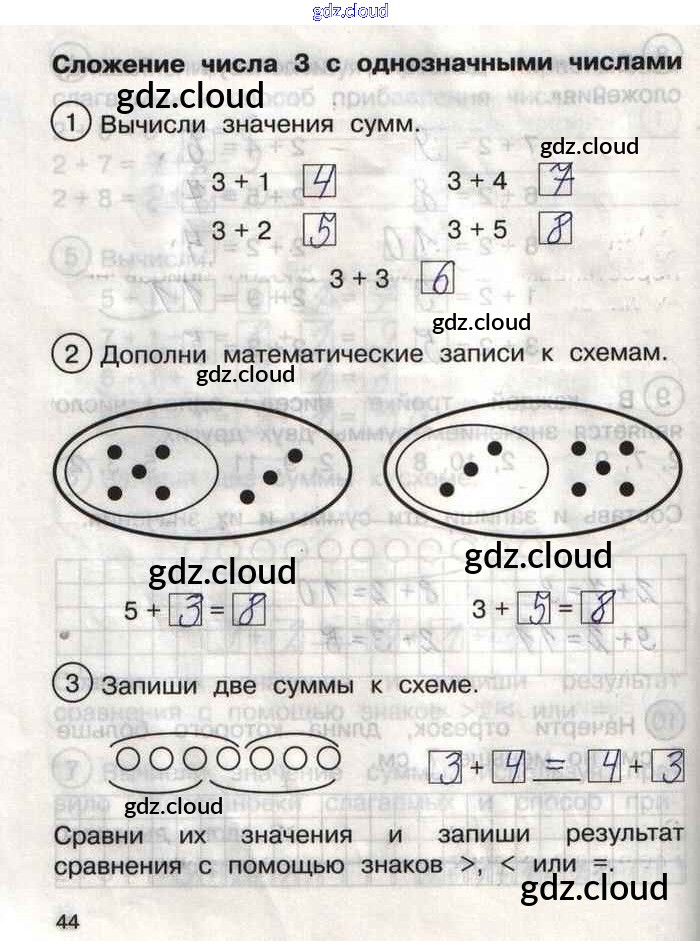 gdz.cloud
Сложение числа 3 с однозначными числами
gdz.cloud
1 Вычисли значения сумм.
gdz.cloud
3 + 1 4 3 + 4 7
3 + 2 5 3 + 5 8
3 + 3 6
gdz.cloud
2 Дополни математические записи к схемам.
gdz.cloud
gdz.cloud
gdz.cloud
5 + 3 = 8 3 + 5 = 8
3 Запиши две суммы к схеме.
3 + 4 = 4 + 3
gdz.cloud
Сравни их значения и запиши результат
сравнения с помощью знаков >, < или =.
gdz.cloud
44